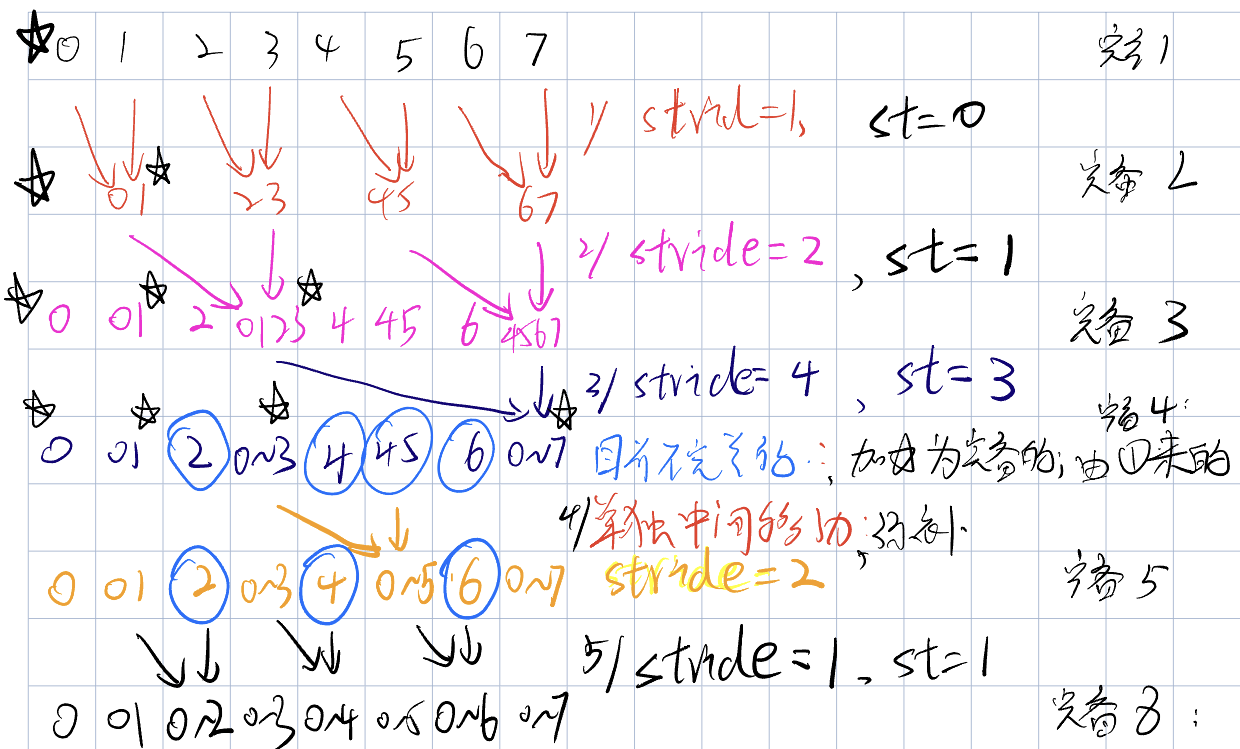 0 1 2 3 4 5 6 7 完备 1
1/ strid=1, st=0
01 23 45 67 完备 2
2/ stride=2, st=1
0 01 2 0123 4 45 6 4567 完备 3
3/ stride=4, st=3
完备 4:
0 01 2 0~3 4 45 6 0~7 目前不完备的:, 加为完备的; 由 来的
4/ 单独中间移动;
0 01 2 0~3 4 0~5 6 0~7 stride=2 完备 5
5/ stride=1, st=1
0 01 0~2 0~3 0~4 0~5 0~6 0~7 完备 8: